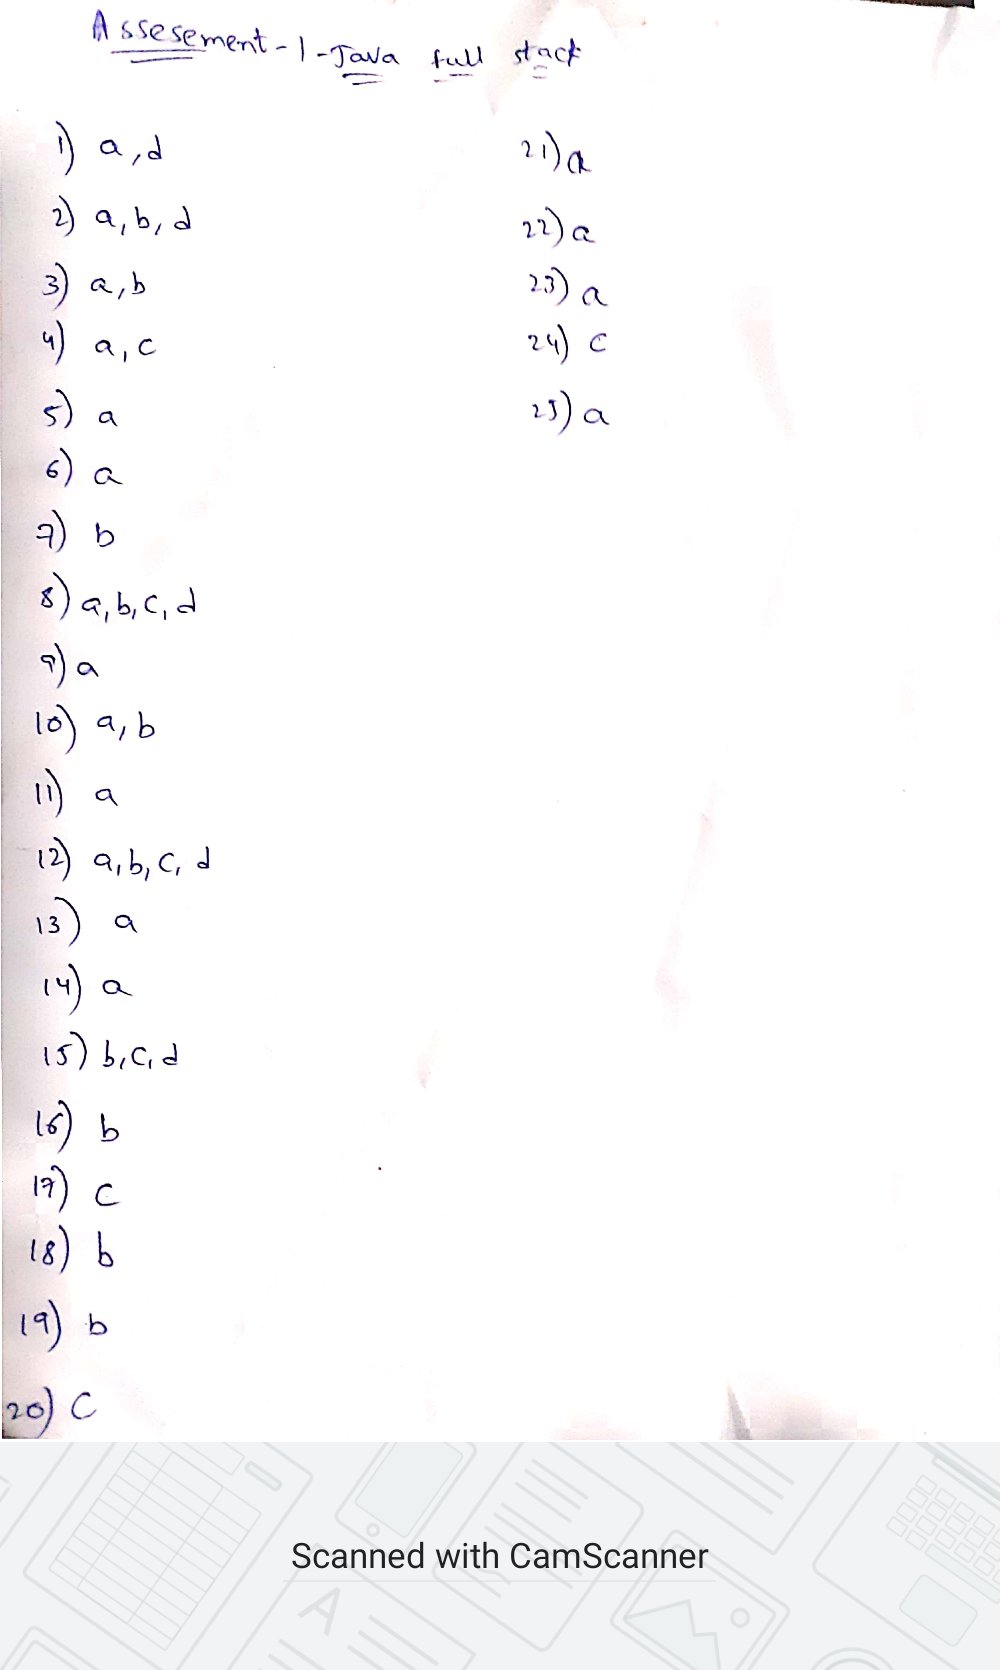 Assesement-1-Java full stack
1) a,d
2) a,b,d
3) a,b
4) a,c
5) a
6) a
7) b
8) a,b,c,d
9) a
10) a,b
11) a
12) a,b,c,d
13) a
14) a
15) b,c,d
16) b
17) c
18) b
19) b
20) c
21) a
22) a
23) a
24) c
25) a
Scanned with CamScanner